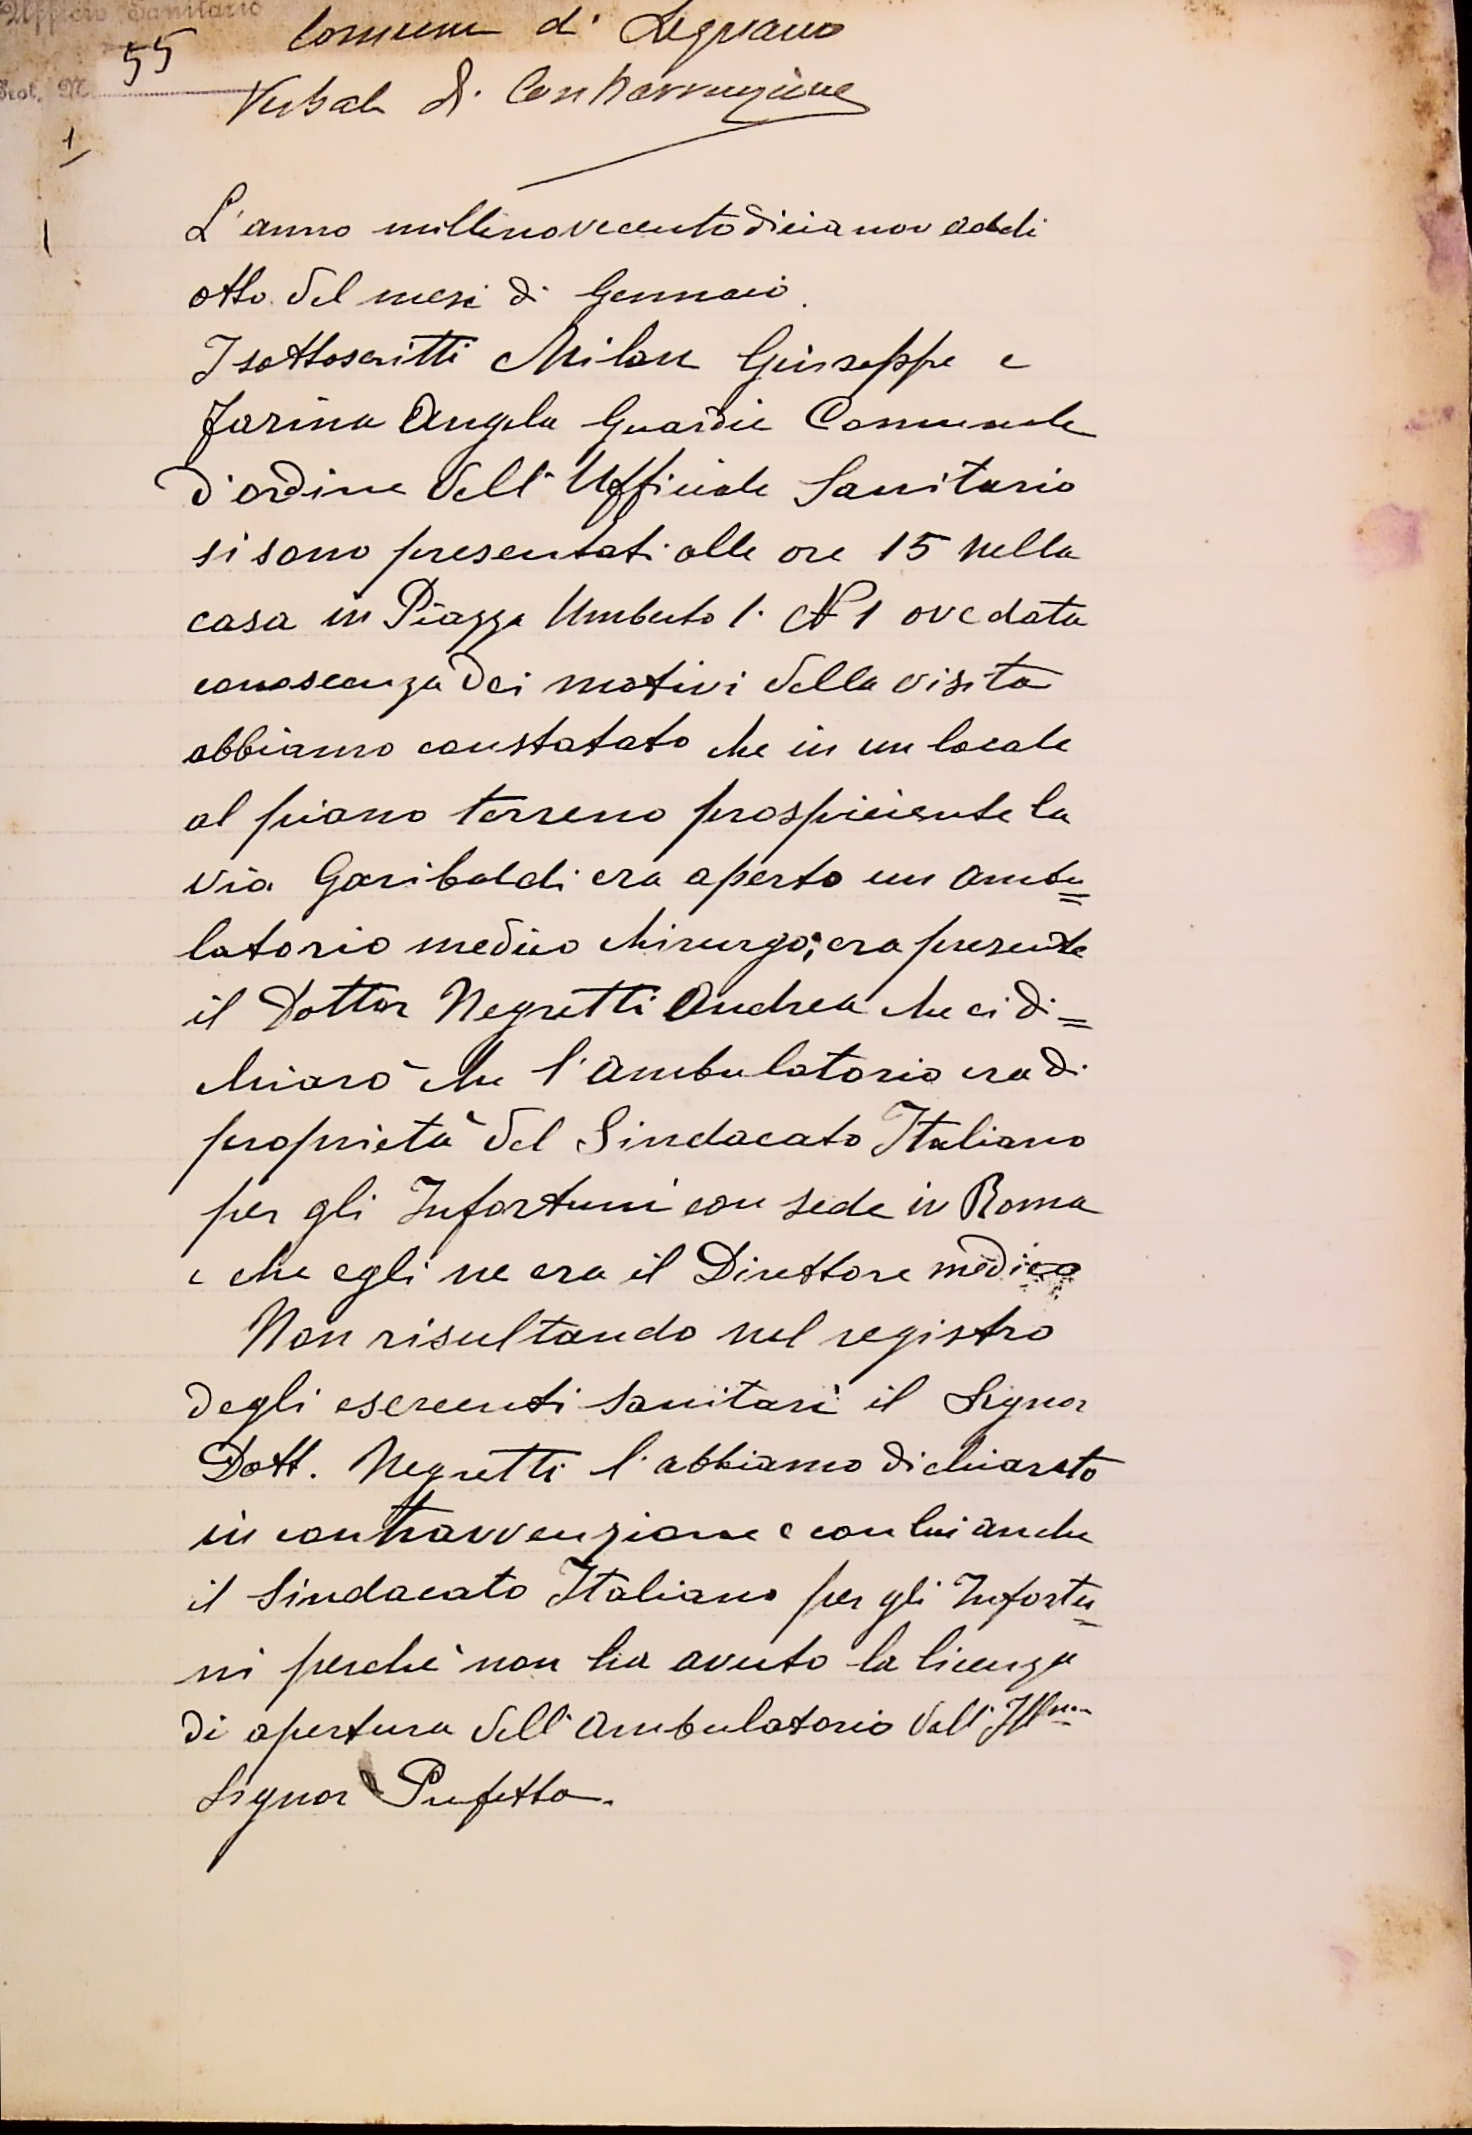 Ufficio Sanitario
Prot. N. 55
Comune di Legnano
Verbale di Contravvenzione
1
L'anno millenovecentodicianove addi
otto del mese di Gennaio.
I sottoscritti Milan Giuseppe e
Farina Angelo Guardie Comunale
d'ordine dell'Ufficiale Sanitario
si sono presentati alle ore 15 nella
casa in Piazza Umberto 1. N 1 ove data
conoscenza dei motivi della visita
abbiamo constatato che in un locale
al piano terreno prospiciente la
Via Garibaldi era aperto un ambu=
latorio medico chirurgo; era presente
il Dottor Negretti Andrea che ci di=
chiarò che l'ambulatorio era di
proprietà del Sindacato Italiano
per gli Infortuni con sede in Roma
e che egli ne era il Direttore medico
Non risultando nel registro
degli esercenti sanitari il Signor
Dott. Negretti l'abbiamo dichiarato
in contravvenzione e con lui anche
il Sindacato Italiano per gli Infortu=
ni perchè non ha avuto la licenza
di apertura dell'ambulatorio dall'Illmo
Signor Prefetto.